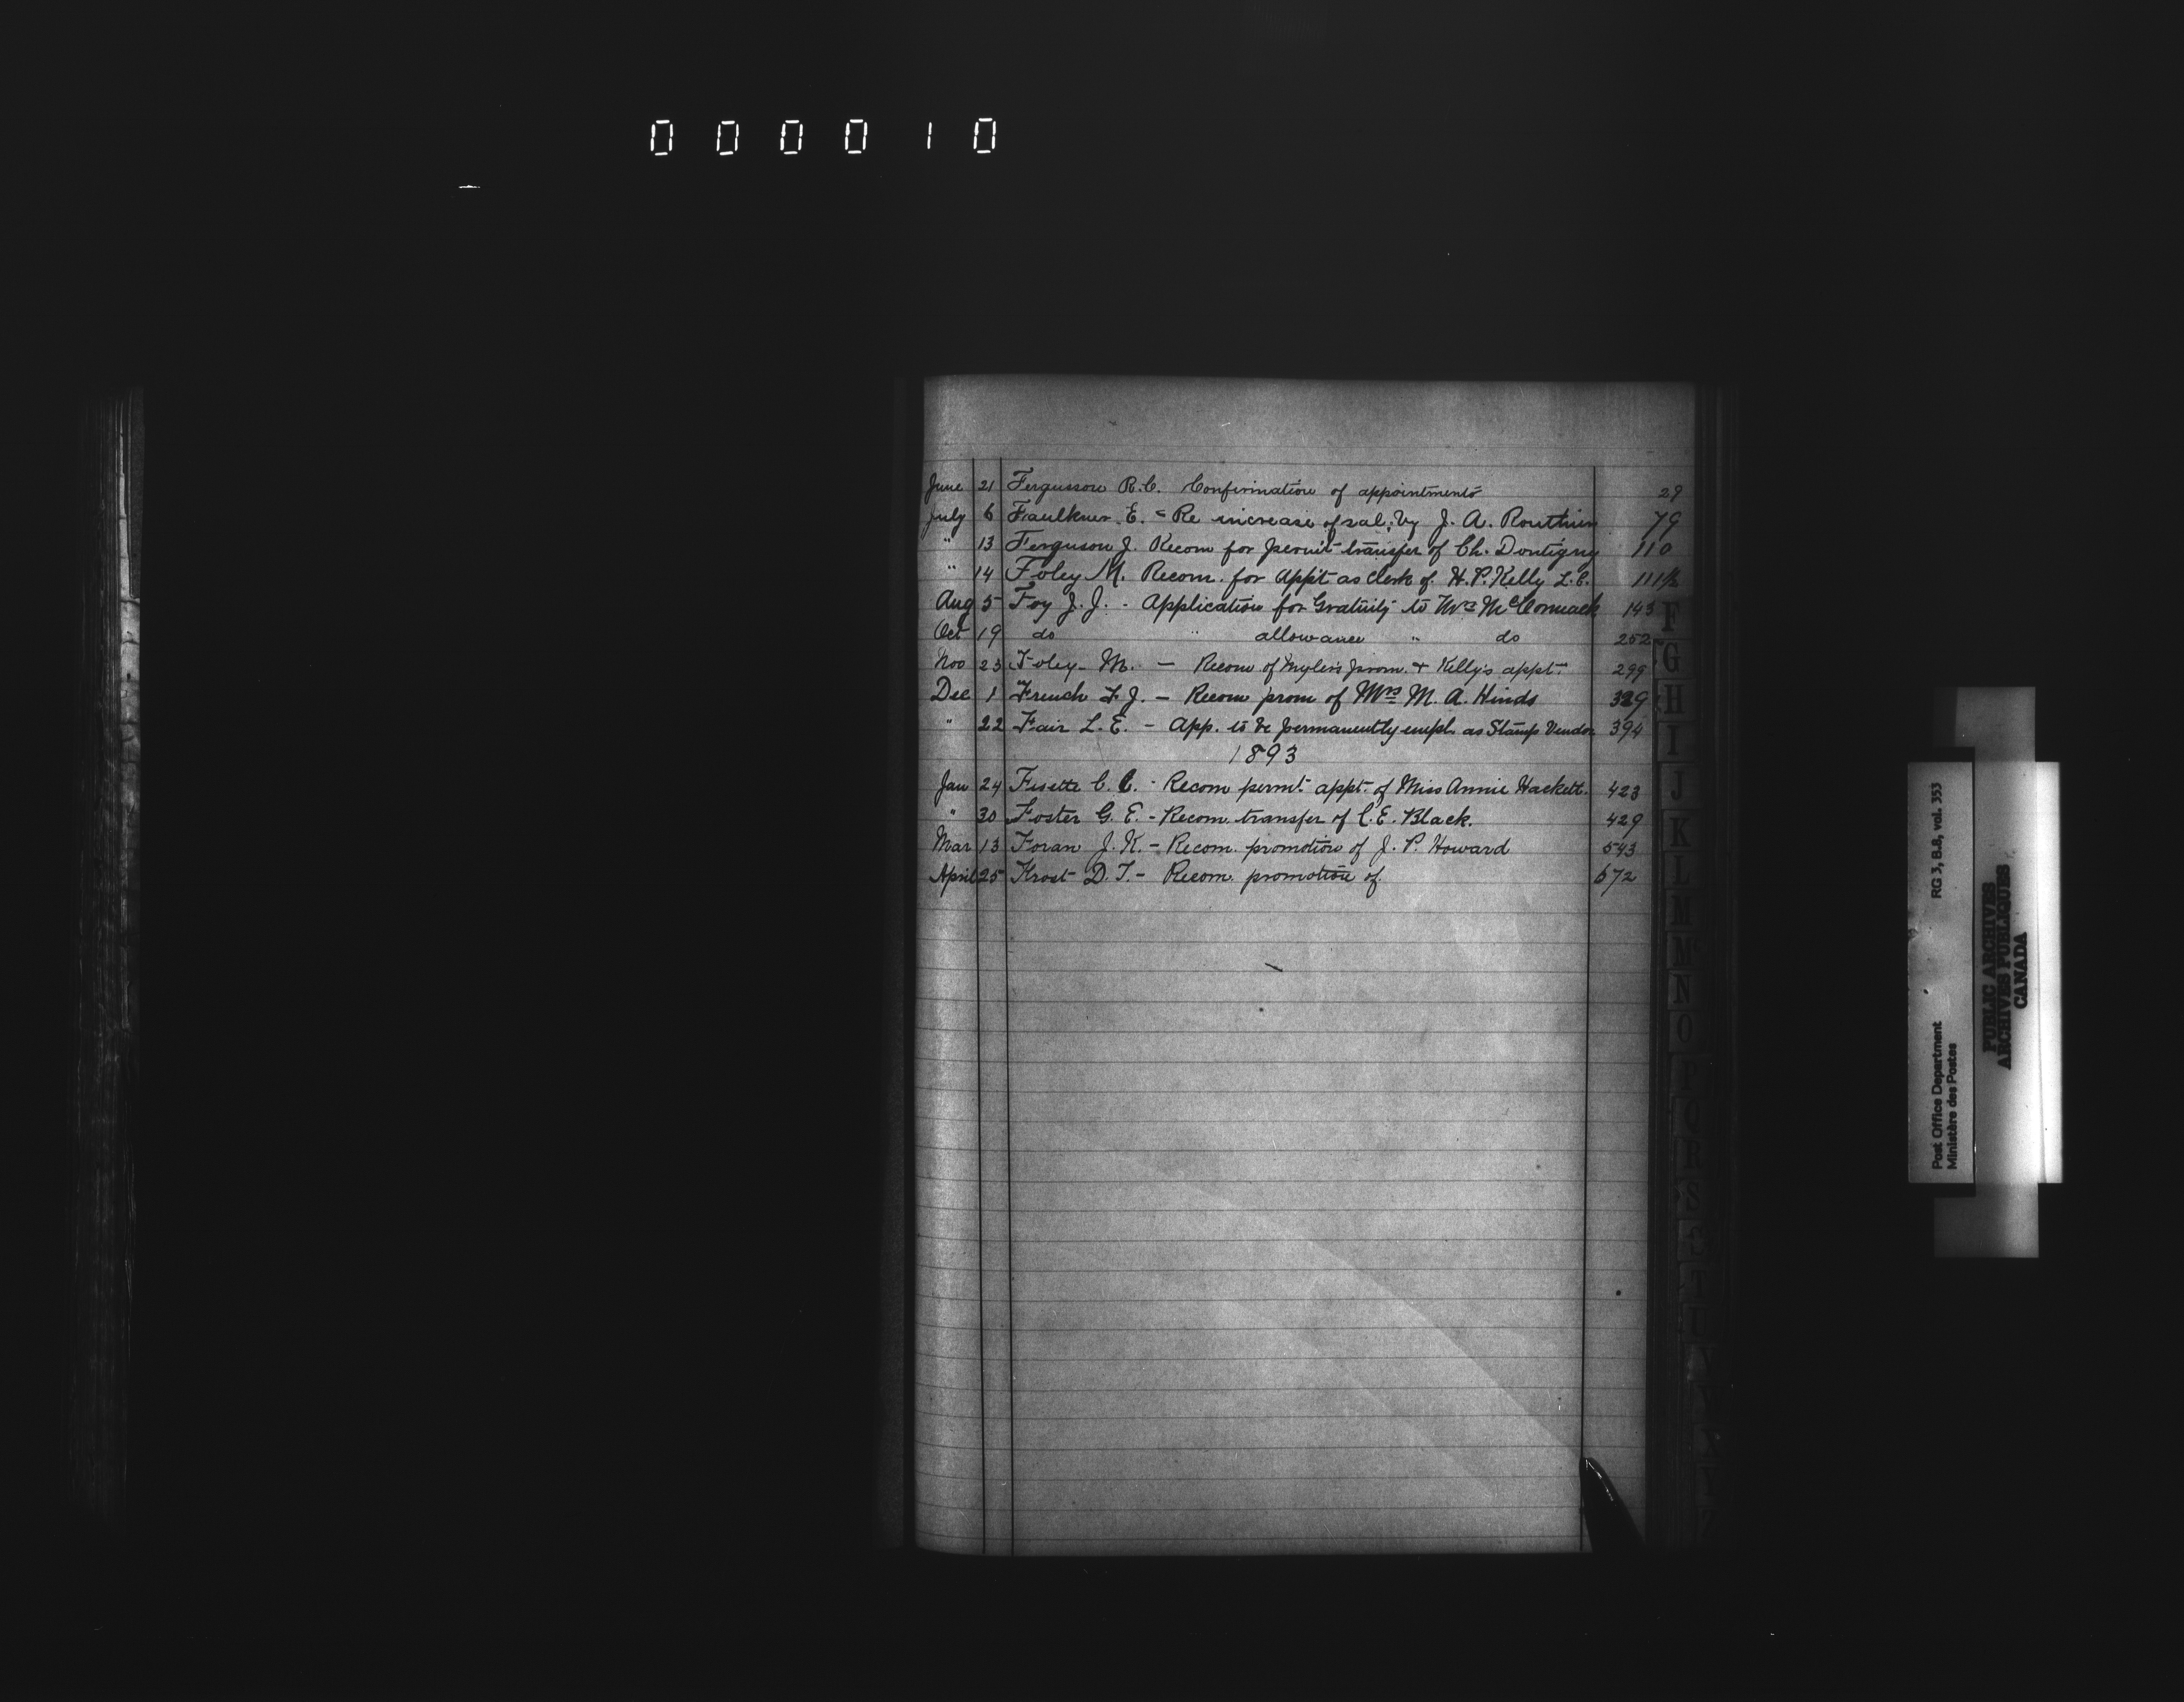 000010
June 21 Fergusson R.C. Confirmation of appointments 29
July 6 Faulkner E. = Re increase of sal. by J. A. Routhier 79
" 13 Ferguson J. Recom for permt transfer of Ch. Dontigny 110
" 14 Foley M. Recom. for App't as Clerk of H. P. Kelly L.C. 111½
Aug 5 Foy J. J. - Application for Gratuity to Mrs McCormack 143
Oct 19 do " allowance " do 252
Nov 23 Foley M. — Recom of Myler's prom. + Kelly's appt. 299
Dec 1 French F. J. — Recom prom of Mrs M. A. Hinds 329
" 22 Fair L. E. - App. to be permanently empl. as Stamp Vendor 394
1893
Jan 24 Fisette C. C. - Recom permt. appt. of Miss Annie Hackett. 423
" 30 Foster G. E. - Recom. transfer of C. E. Black. 429
Mar 13 Foran J. K. - Recom. promotion of J. P. Howard 543
April 25 Frost D. T. - Recom. promotion of 672
F
G
H
I
J
K
L
M
N
O
Q
R
S
T
U
Post Office Department RG 3, B.8, vol. 353
Ministère des Postes
PUBLIC ARCHIVES
ARCHIVES PUBLIQUES
CANADA